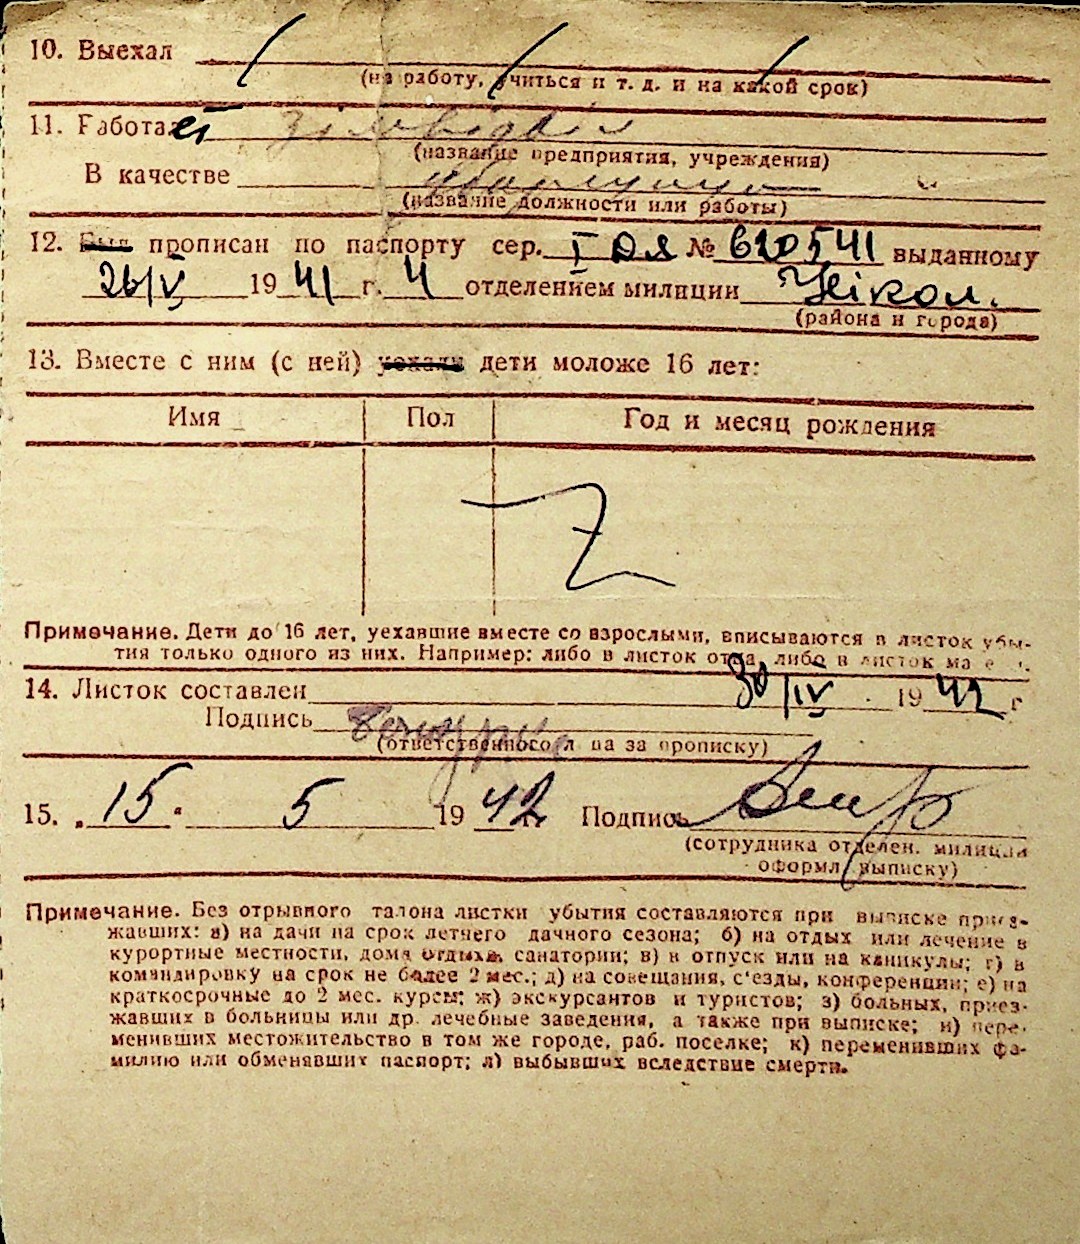 10. Выехал
(на работу, учиться и т. д. и на какой срок)
11. Работает
(название предприятия, учреждения)
В качестве
(название должности или работы)
12. Был прописан по паспорту сер. I ДЯ № 620541 выданному
26/V 1941 г. 4 отделением милиции Нікол.
(района и города)
13. Вместе с ним (с ней) уехали дети моложе 16 лет:
Имя Пол Год и месяц рождения
Z
Примечание. Дети до 16 лет, уехавшие вместе со взрослыми, вписываются в листок убы-
тия только одного из них. Например: либо в листок отца, либо в листок ма
14. Листок составлен 30/IV 1942 г
Подпись
(ответственного л ца за прописку)
15. „15" 5 1942 г. Подпись
(сотрудника отделен. милиции
оформл выписку)
Примечание. Без отрывного талона листки убытия составляются при выписке приез-
жавших: а) на дачи на срок летнего дачного сезона; б) на отдых или лечение в
курортные местности, дома отдыха, санатории; в) в отпуск или на каникулы; г) в
командировку на срок не более 2 мес.; д) на совещания, с'езды, конференции; е) на
краткосрочные до 2 мес. курсы; ж) экскурсантов и туристов; з) больных, приез-
жавших в больницы или др. лечебные заведения, а также при выписке; и) пере-
менивших местожительство в том же городе, раб. поселке; к) переменивших фа-
милию или обменявших паспорт; л) выбывших вследствие смерти.